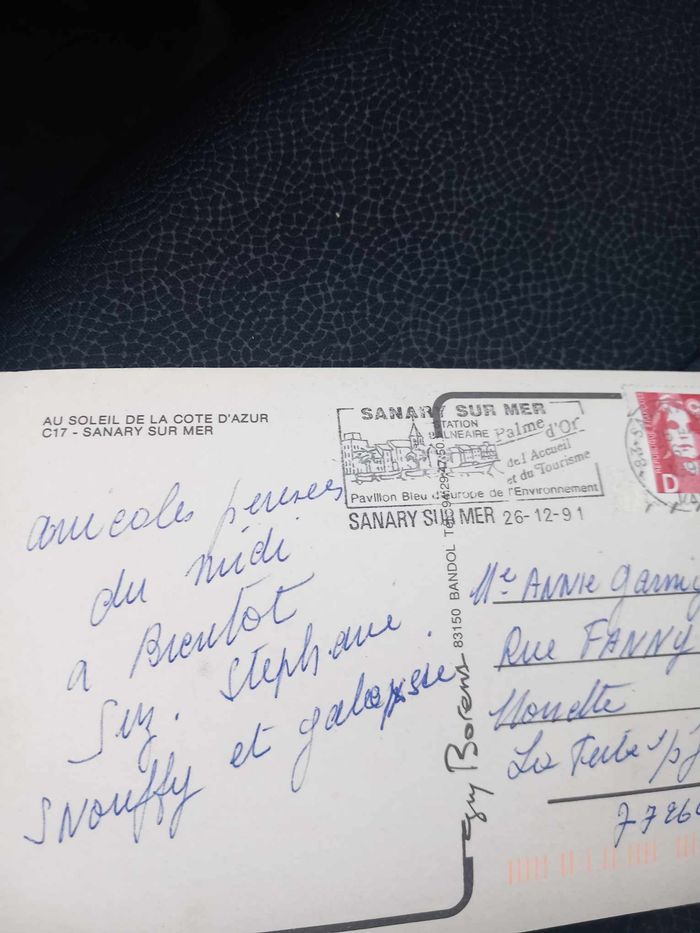 AU SOLEIL DE LA COTE D'AZUR
C17 - SANARY SUR MER
SANARY SUR MER
STATION
BALNEAIRE
Palme d'Or
de l'Accueil
et du Tourisme
Pavillon Bleu d'Europe de l'Environnement
SANARY SUR MER 26-12-91
D
amicales pensees
du midi
a Bientot
Suz. Stephane.
SNouffy et
Guy Borens 83150 BANDOL Tel 94.29.47.50
Me ANNIE
Rue FANNY
La Ferté s/j